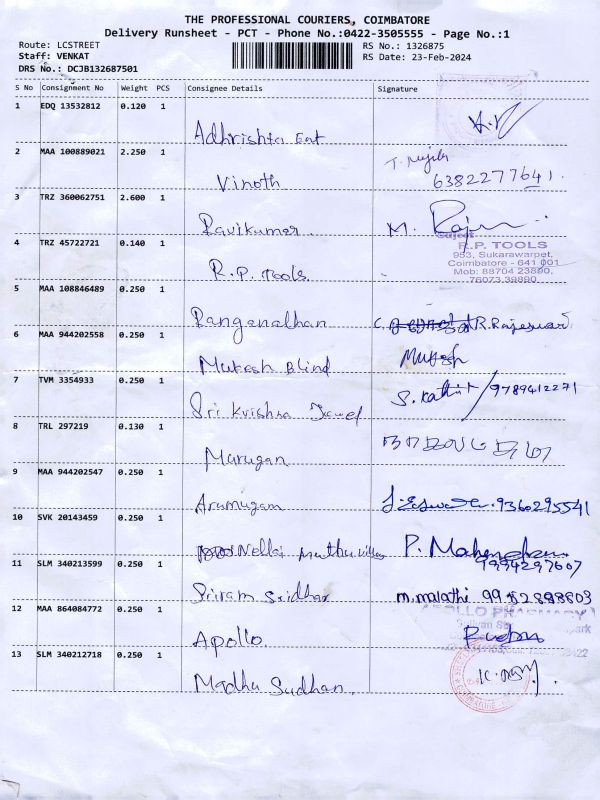 THE PROFESSIONAL COURIERS, COIMBATORE
Delivery Runsheet - PCT - Phone No.:0422-3505555 - Page No.:1
Route: LCSTREET
RS No.: 1326875
Staff: VENKAT
RS Date: 23-Feb-2024
DRS No.: DCJB132687501
S No Consignment No Weight PCS Consignee Details Signature
1 EDQ 13532812 0.120 1
Adhrishta Eat
2 MAA 100889021 2.250 1
Vinoth 6382277641.
3 TRZ 360062751 2.600 1
Ravikumar M.
4 TRZ 45722721 0.140 1
R.P. TOOLS
953, Sukarawarpet,
Coimbatore - 641 001
Mob: 88704 23890,
76073 39890
R.P. Tools.
5 MAA 108846489 0.250 1
Ranganathan R. Rajeswari
6 MAA 944202558 0.250 1
Mukesh Blind Mukesh
7 TVM 3354933 0.250 1
Sri Krishna Jewel S. 9789412271
8 TRL 297219 0.130 1
Murugan
9 MAA 944202547 0.250 1
Arumugam 9360295541
10 SVK 20143459 0.250 1
Nellai Muthu P.
9994297607
11 SLM 340213599 0.250 1
Sriram Sridhar m.malathi 9952898803
12 MAA 864084772 0.250 1
APOLLO PHARMACY
Apollo.
13 SLM 340212718 0.250 1
Madhu Sudhan.